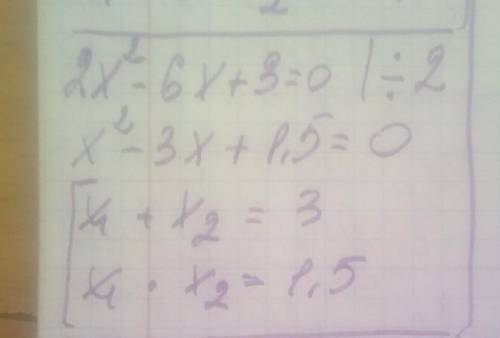 2
2x² - 6x + 3 = 0 | ÷ 2
x² - 3x + 1,5 = 0
[ x₁ + x₂ = 3
x₁ · x₂ = 1,5